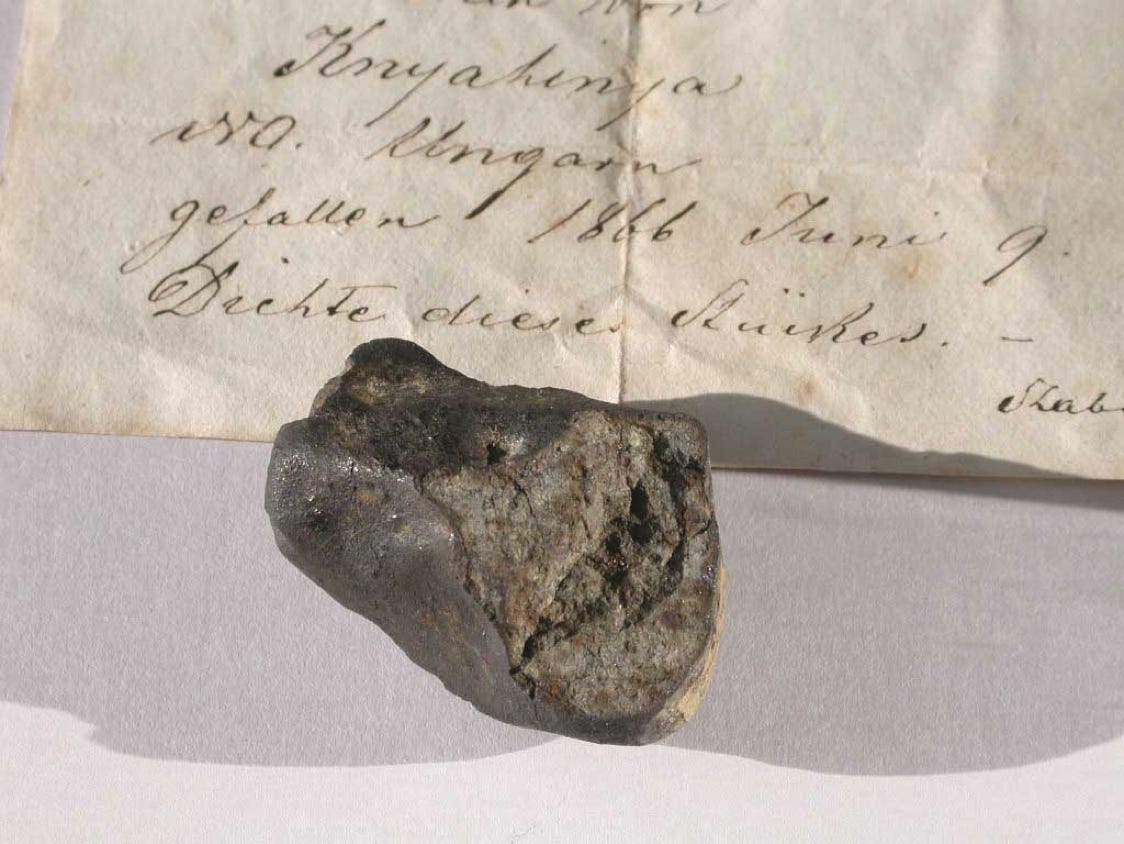 von
Knyahinya
Ungarn
gefallen 1866 Juni 9.
Dichte dieses Stückes. –
Szabó